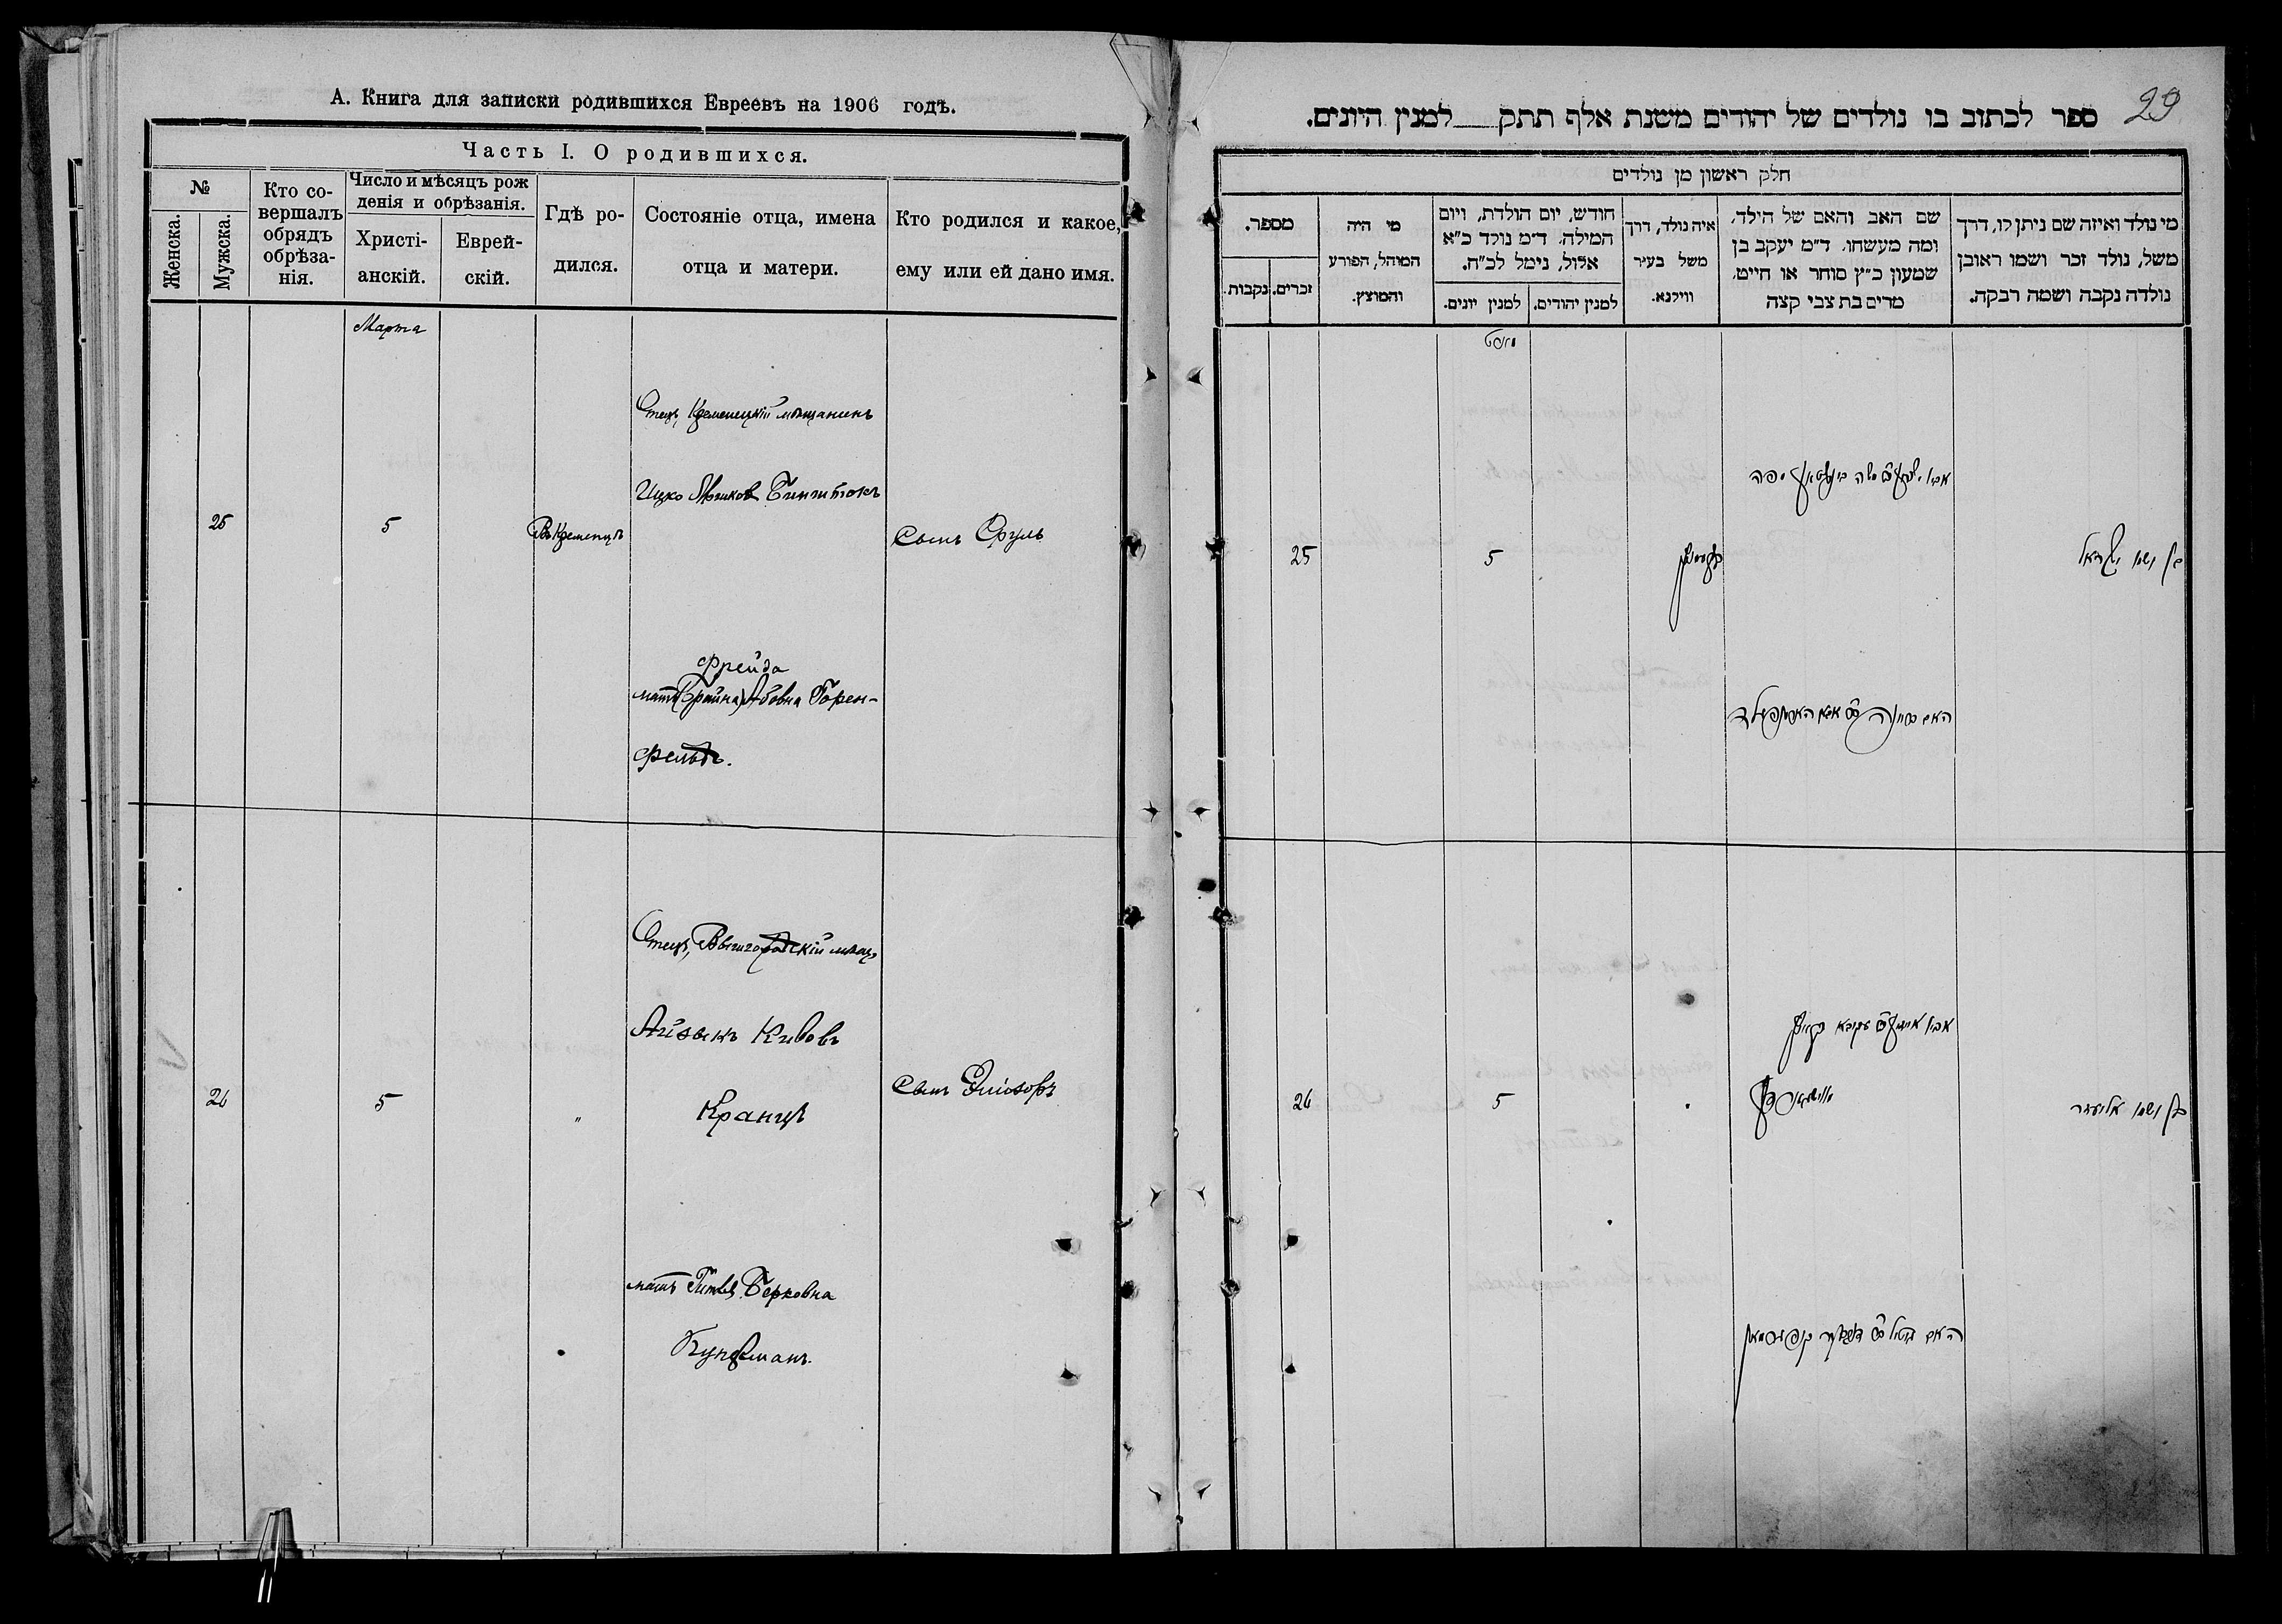 А. Книга для записки родившихся Евреевъ на 1906 годъ.
Часть I. О родившихся.
№
Женска.
Мужска.
Кто со-
вершалъ
обрядъ
обрѣза-
нія.
Число и мѣсяцъ рож
денія и обрѣзанія.
Христі-
анскій.
Еврей-
скій.
Гдѣ ро-
дился.
Состояніе отца, имена
отца и матери.
Кто родился и какое,
ему или ей дано имя.
Марта
Отецъ, Кременецкій мѣщанинъ
Ицко
25
5
Въ Кременцѣ
Сынъ Сруль
Фрейда
мать (Брайна) Абовна Горен-
фельдъ.
Отецъ, Вышгородскій мѣщ.
Айзыкъ Кивовъ
26
5
"
Кранцъ
Сынъ Эліозоръ
мать Гитля Берковна
Купферманъ.
29
ספר לכתוב בו נולדים של יהודים משנת אלף תתק למנין היונים.
חלק ראשון מן נולדים
מספר.
זכרים.
נקבות.
מי היה
המוהל, הפורע
והמוצץ.
חודש, יום הולדת, ויום
המילה. ד״מ נולד כ״א
אלול, נימל לכ״ח.
למנין יהודים.
למנין יונים.
איה נולד, דרך
משל בעיר
ווילנא.
שם האב והאם של הילד,
ומה מעשהו. ד״מ יעקב בן
שמעון כ״ץ סוחר או חייט,
מרים בת צבי קצה
מי נולד ואיזה שם ניתן לו, דרך
משל, נולד זכר ושמו ראובן
נולדה נקבה ושמה רבקה.
מארט
25
5
קרעמניץ
בן ושמו ישראל
26
5
בן ושמו אליעזר